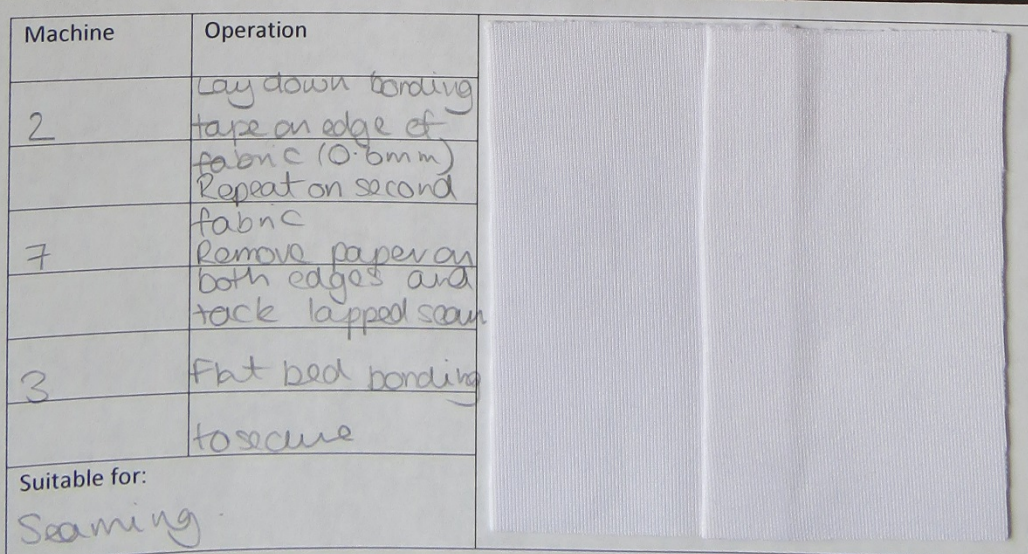 Machine Operation
Lay down bonding
2 tape on edge of
fabric (0.6mm)
Repeat on second
fabric
7 Remove paper on
both edges and
tack lapped seam
3 Flat bed bonding
to secure
Suitable for:
Seaming